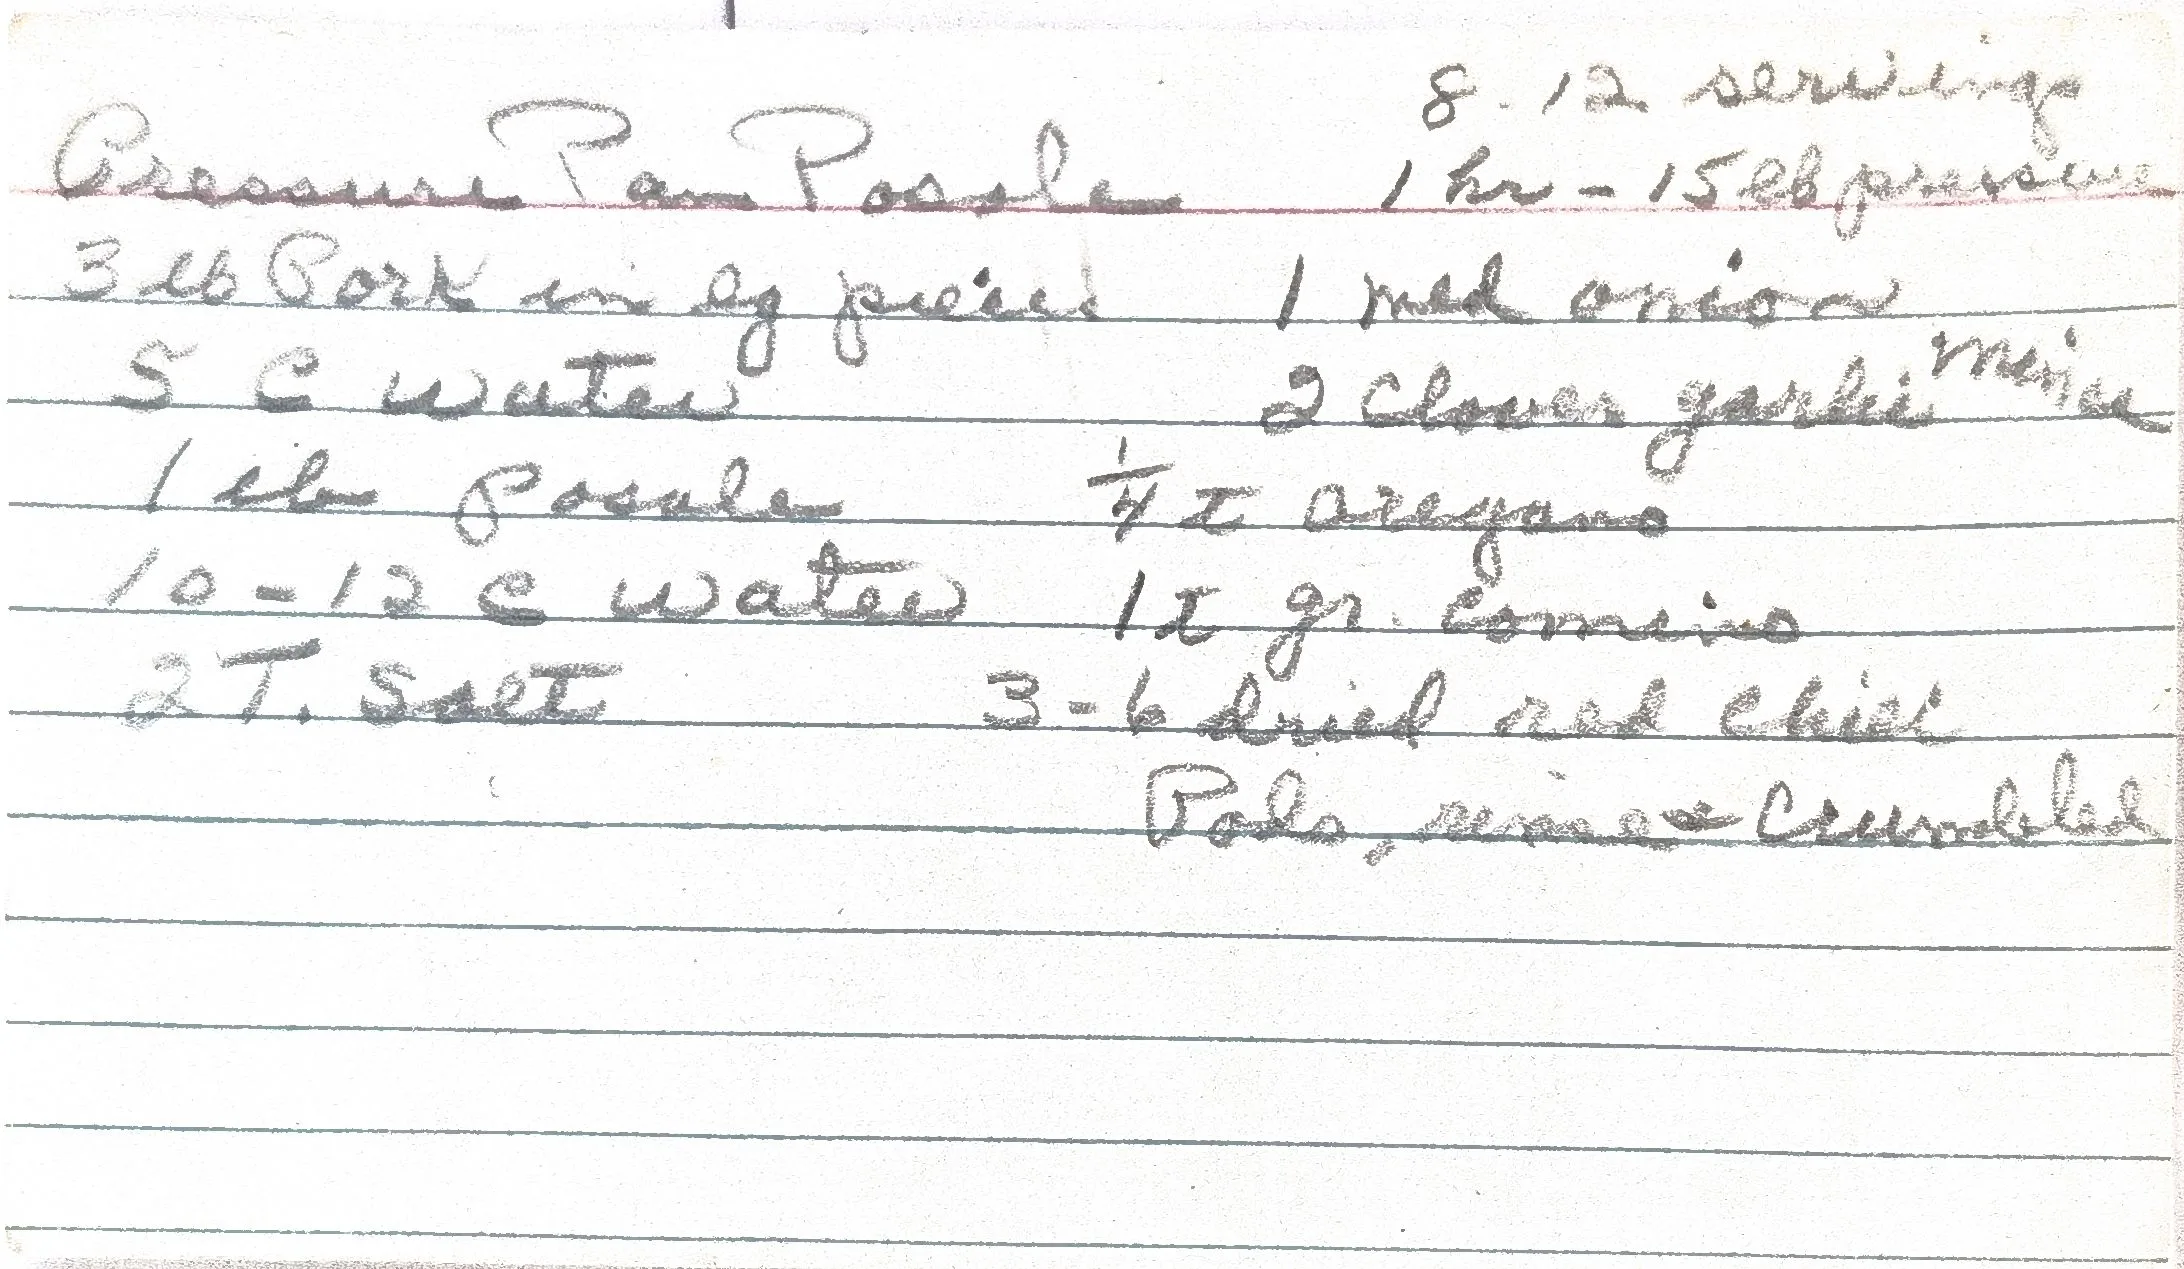 8-12 servings
Pressure Pan Posole 1 hr - 15 lb pressure
3 lb Pork in lg pieces 1 med onion
5 C water 2 cloves garlic mince
1 lb posole 1/4 t oregano
10-12 C water 1 t gr. Comino
2 T. Salt 3-6 dried red chili
Pods, rinse & Crumbled